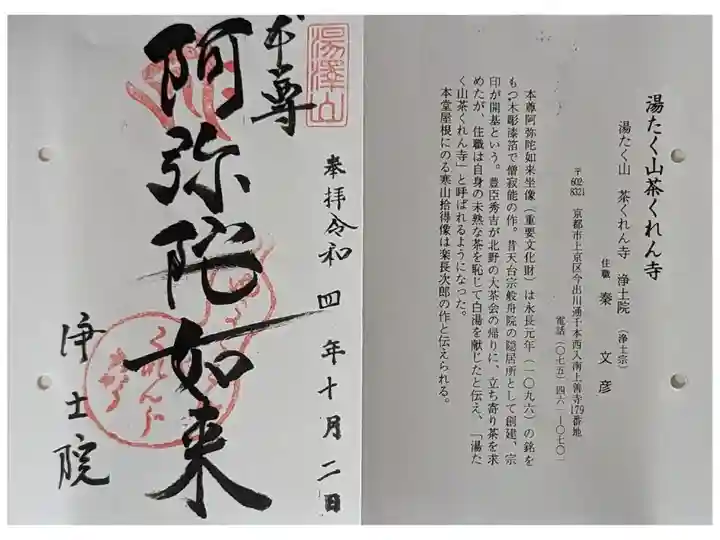 湯たく山茶くれん寺
湯たく山 茶くれん寺 浄土院 (浄土宗)
住職 秦 文彦
〒602-8321 京都市上京区今出川通千本西入南上善寺179番地
電話(〇七五)四六一-〇七〇一
本尊阿弥陀如来坐像(重要文化財)は永長元年(一〇九六)の銘を
もつ木彫漆箔で僧寂能の作。昔天台宗般舟院の隠居所として創建、宗
印が開基という。豊臣秀吉が北野の大茶会の帰りに、立ち寄り茶を求
めたが、住職は自身の未熟な茶を恥じて白湯を献じたと伝え、「湯た
く山茶くれん寺」と呼ばれるようになった。
本堂屋根にのる寒山拾得像は楽長次郎の作と伝えられる。
湯澤山
奉拝 令和四年十月二日
本尊
阿弥陀如来
浄土院